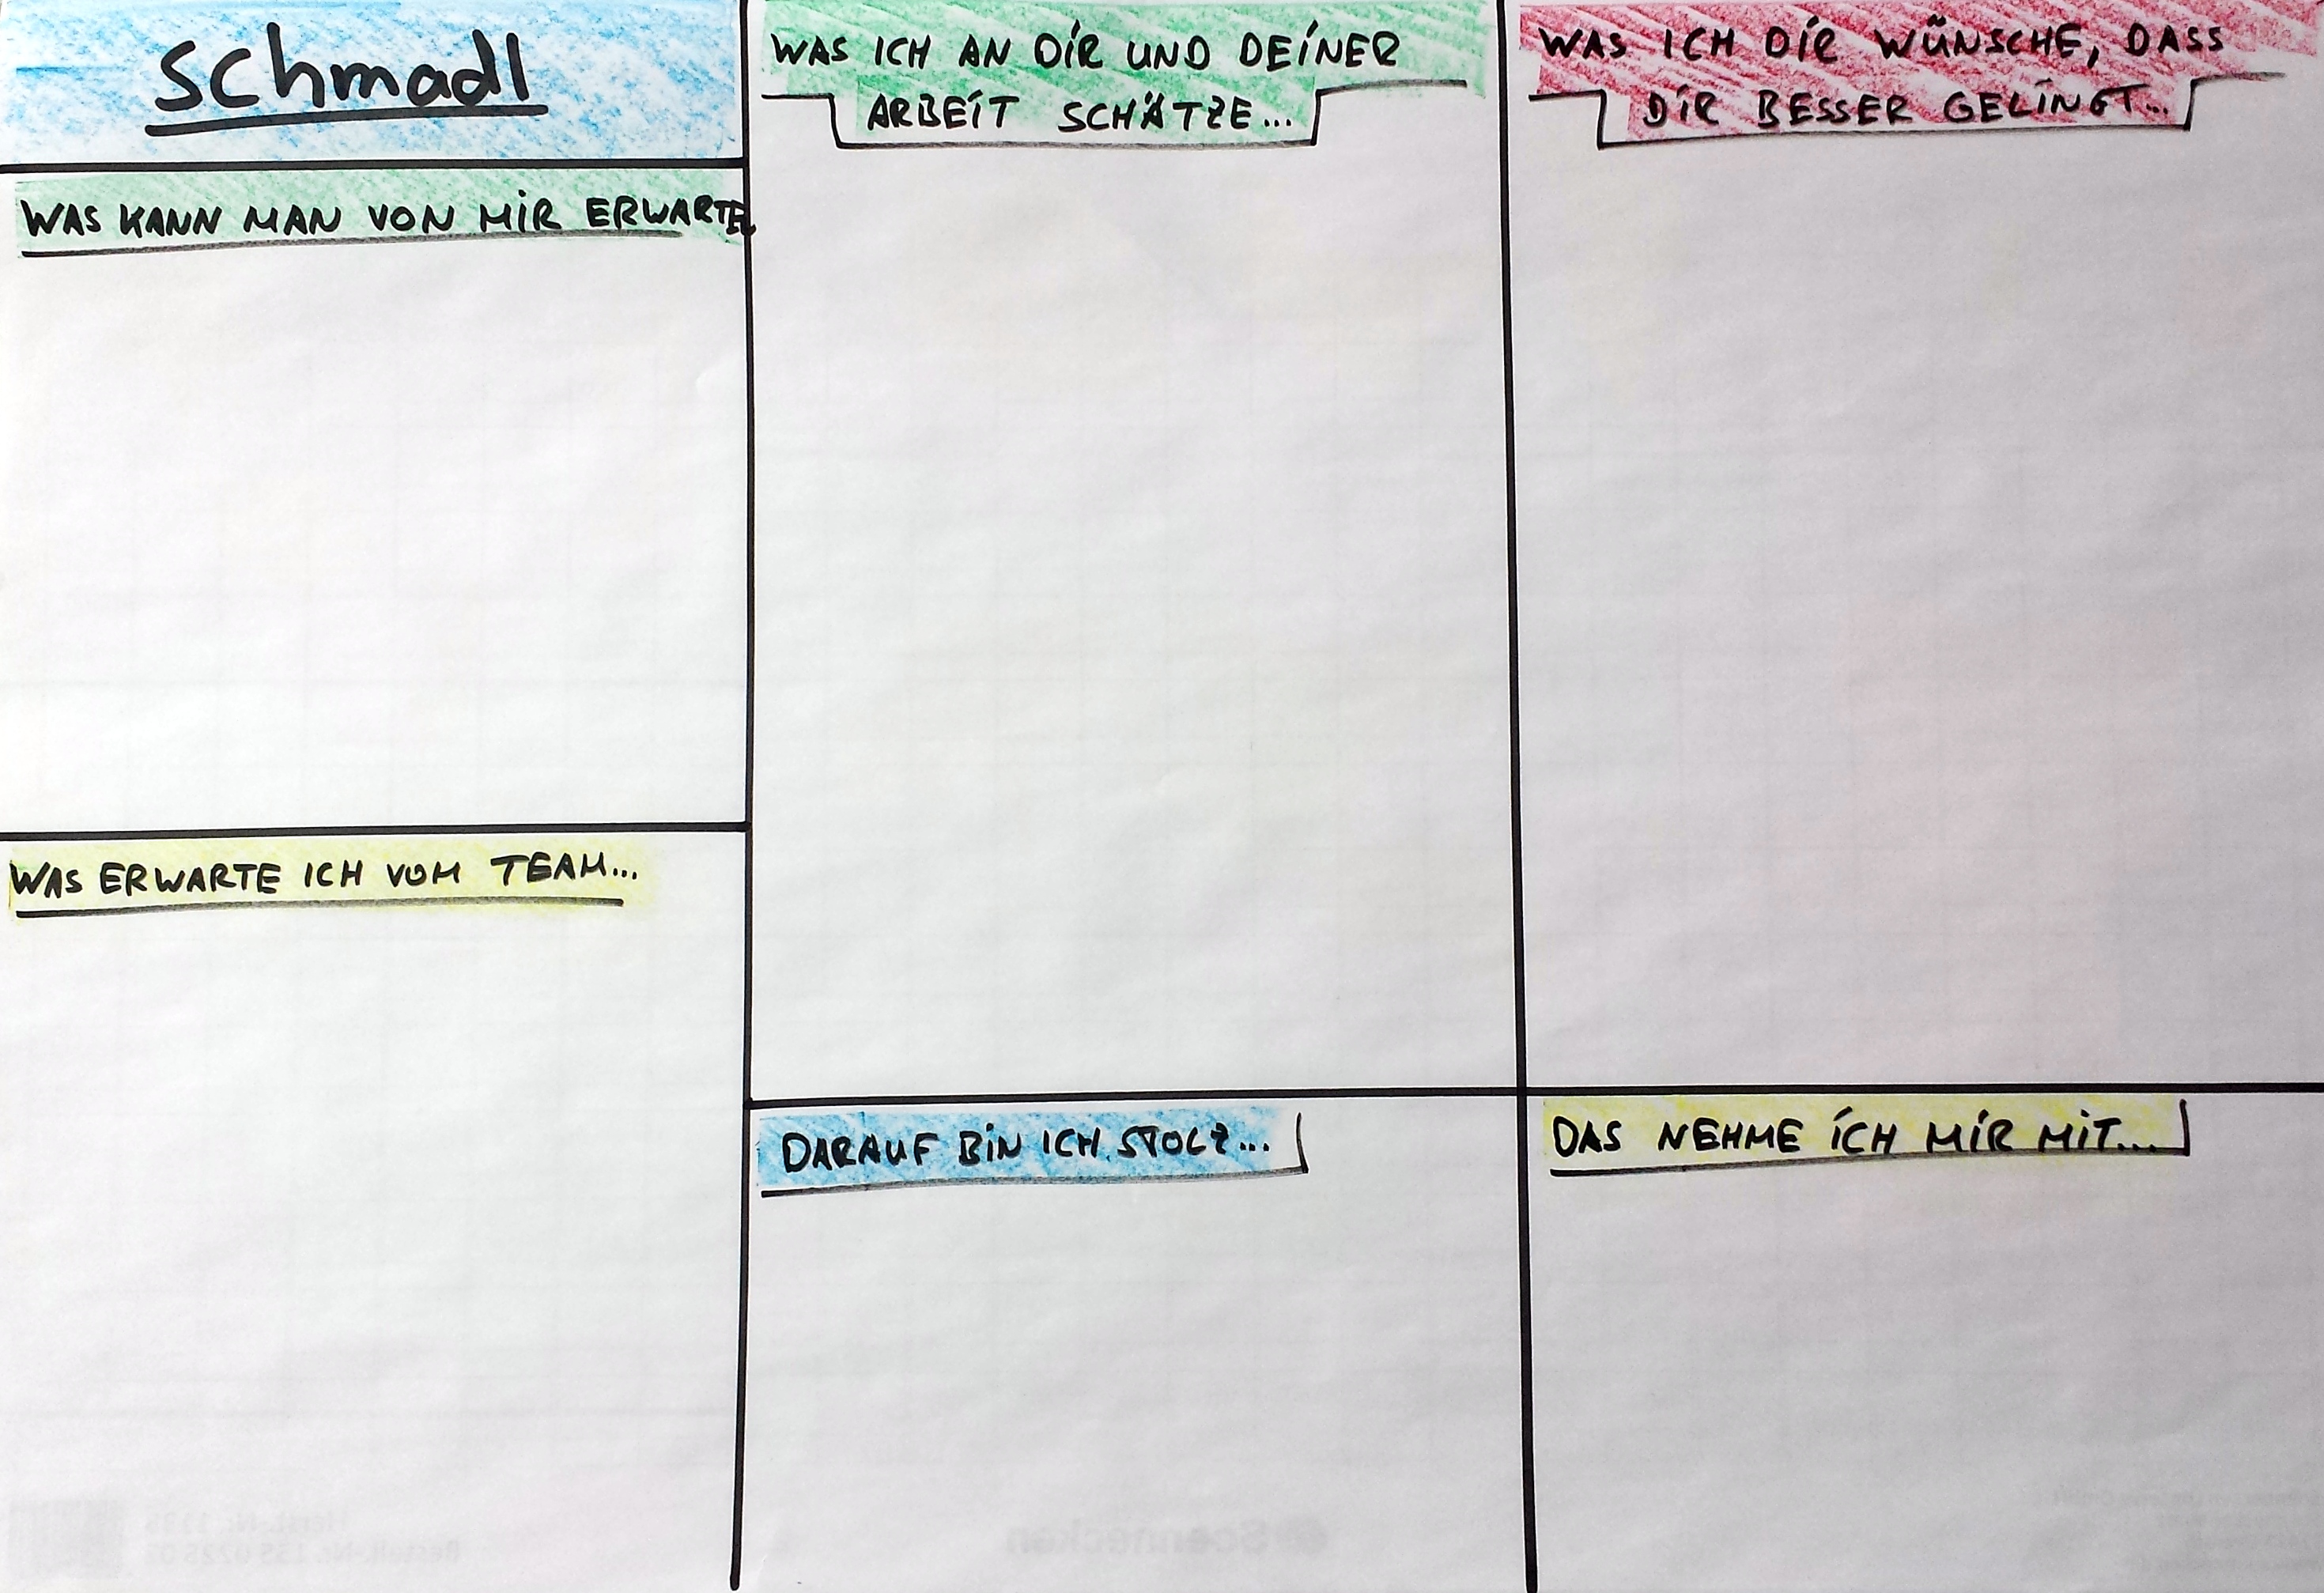 Schmadl
WAS KANN MAN VON MIR ERWARTEN
WAS ERWARTE ICH VOM TEAM...
WAS ICH AN DIR UND DEINER
ARBEIT SCHÄTZE...
DARAUF BIN ICH STOLZ...
WAS ICH DIR WÜNSCHE, DASS
DIR BESSER GELINGT...
DAS NEHME ICH MIR MIT...
Soennecken